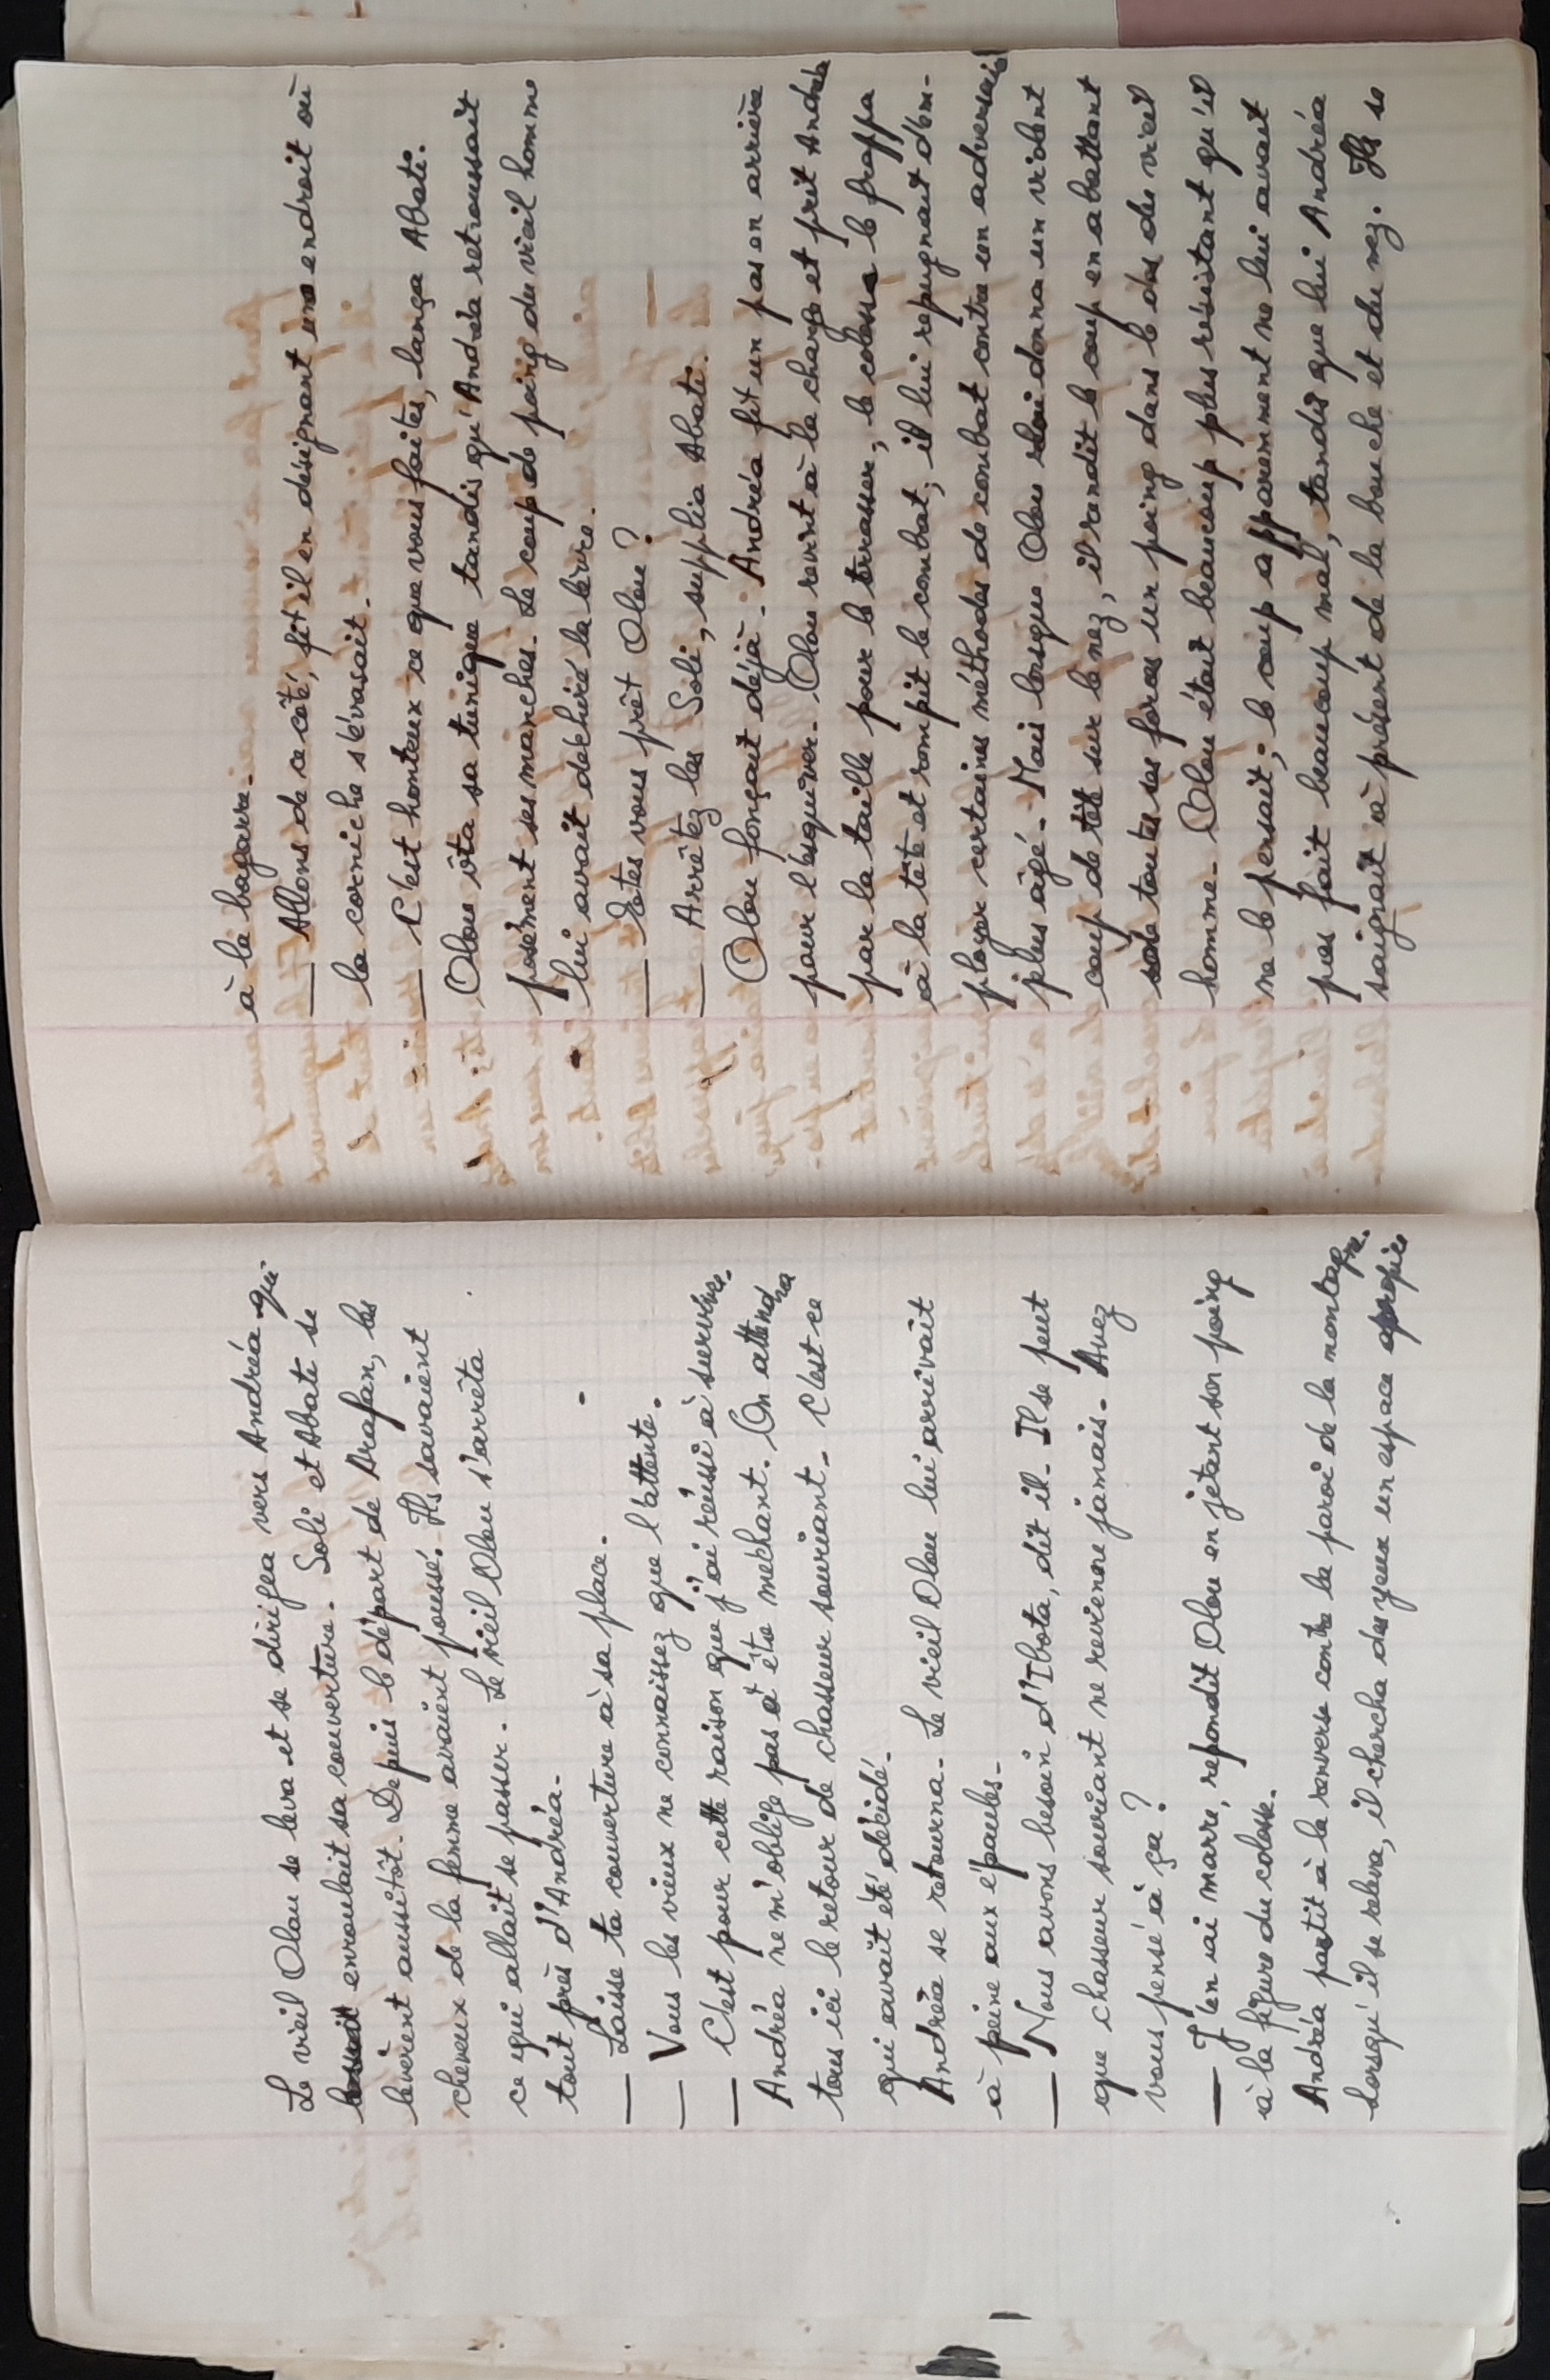 Le vieil Olou se leva et se dirigea vers Andréa qui
enroulait sa couverture. Soli et Abate se
levèrent aussitôt. Depuis le départ de Arafan, les
cheveux de la femme avaient poussé. Ils savaient
ce qui allait se passer. Le vieil Olou s'arrêta
tout près d'Andréa.
— Laisse ta couverture à sa place.
— Vous les vieux ne connaissez que l'attente.
— C'est pour cette raison que j'ai réussi à survivre.
Andréa ne m'oblige pas à être mechant. On attendra
tous ici le retour de chasseur souriant. C'est ce
qui avait été décidé.
Andréa se retourna. Le vieil Olou lui arrivait
à peine aux épaules.
— Nous avons besoin d'Ibota, dit il. Il se peut
que chasseur souriant ne revienne jamais. Avez
vous pensé à ça ?
— J'en ai marre, repondit Olou en jetant son poing
à la figure du colosse.
Andréa partit à la renverse contre la paroi de la montagne.
Lorsqu'il se releva, il chercha des yeux un espace approprié
à la bagarre.
— Allons de ce côté, fit il en désignant un endroit où
la corniche s'évasait.
— C'est honteux ce que vous faites, lança Abate.
Olou ôta sa tunique tandis qu'Andréa retroussait
posément ses manches. Le coup de poing du vieil homme
lui avait dechiré la lèvre.
— Êtes vous prêt Olou ?
— Arrêtez les Soli, supplia Abate.
Olou fonçait déjà. Andréa fit un pas en arrière
pour l'esquiver. Olou revint à la charge et prit Andréa
par la taille pour le terrasser, le colosse le frappa
à la tête et rompit le combat; il lui repugnait d'em-
ployer certaines méthodes de combat contre un adversaire
plus âgé. Mais lorsque Olou lui donna un violent
coup de tête sur le nez, il rendit le coup en abattant
de toutes ses forces un poing dans le dos du vieil
homme. Olou était beaucoup plus résistant qu'il
ne le pensait; le coup apparemment ne lui avait
pas fait beaucoup mal, tandis que lui Andréa
saignait à présent de la bouche et du nez. Ils se